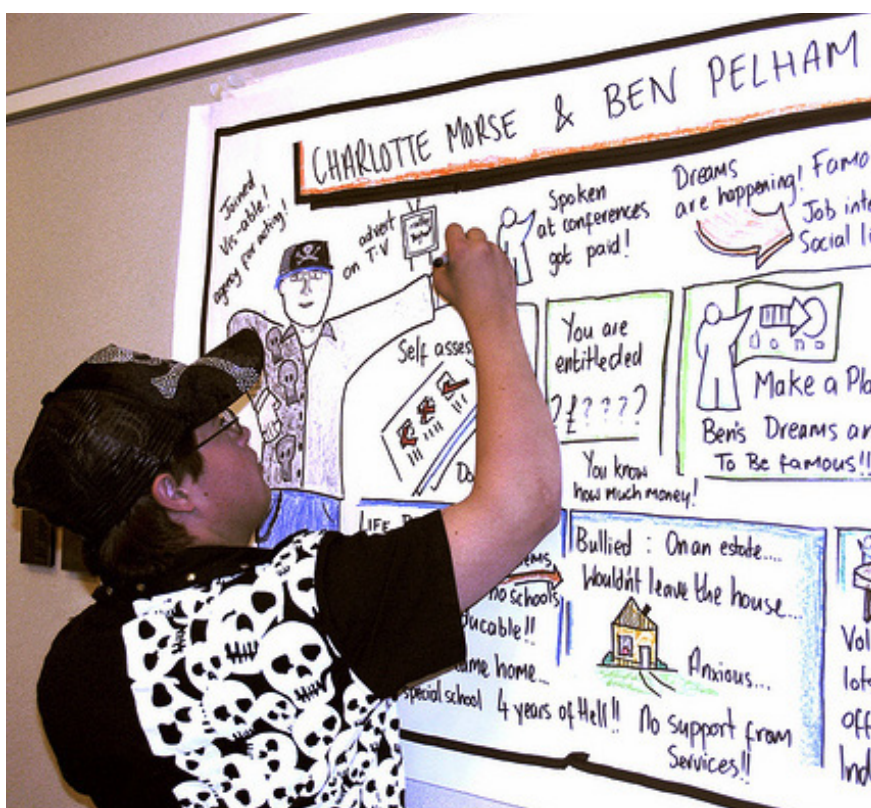 CHARLOTTE MORSE & BEN PELHAM
Joined
Vis-able!
agency for acting!
advert
on T.V
Spoken
at conferences
got paid!
Dreams
are happening! Famo
Job inte
Social li
Self asses
Do
You are
entitleded
?£????
You know
how much money!
Make a Pla
Ben's Dreams ar
To Be famous!!
LIFE
ems
no schools
ucable!!
ame home...
special school 4 years of Hell!!
Bullied : On an estate....
Wouldn't leave the house...
Anxious...
No support from
Services!!
Vol
lot
off
Ind